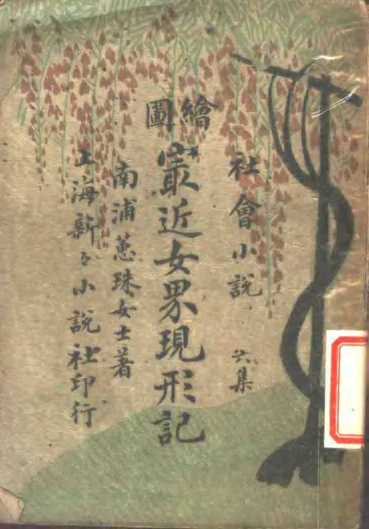 社會小說 六集
繪圖
最近女界現形記
南浦蕙珠女士著
上海新々小說社印行